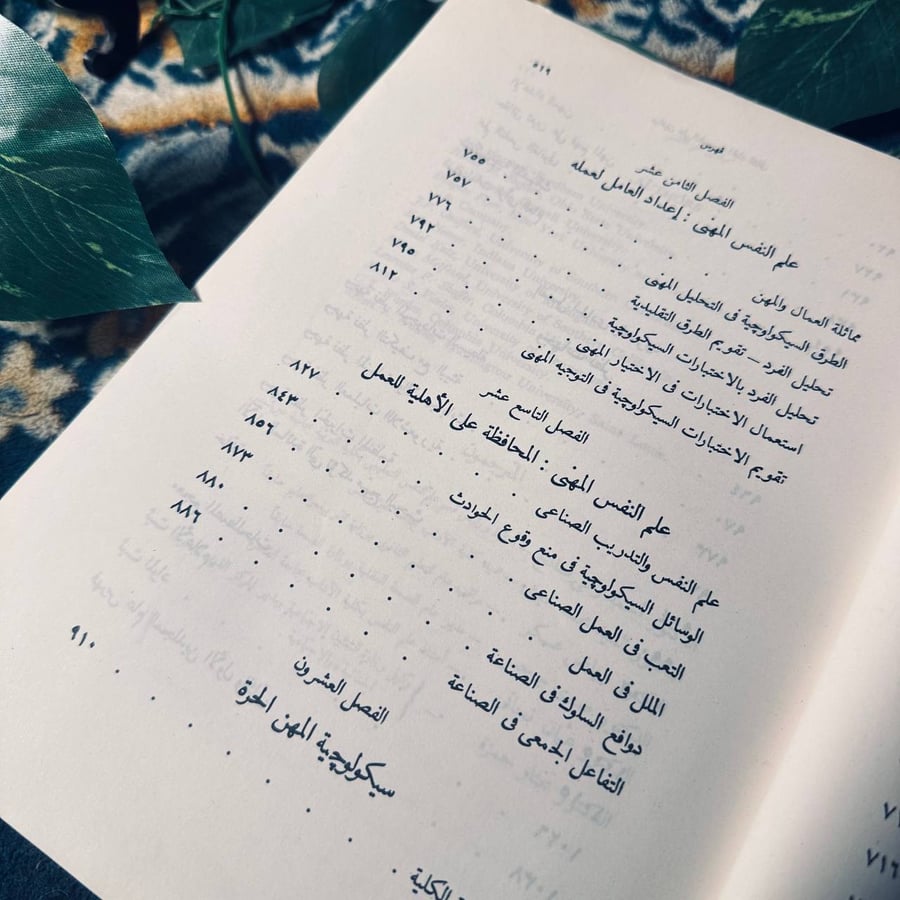 ٥١٩
فهرس
الفصل الثامن عشر
علم النفس المهنى : إعداد العامل لعمله
مماثلة العمال والمهن . . . . ٧٥٥
الطرق السيكولوجية فى التحليل المهنى . . . . ٧٥٧
تحليل الفرد – تقويم الطرق التقليدية . . . . ٧٧٦
تحليل الفرد بالاختبارات السيكولوجية . . . . ٧٩٢
استعمال الاختبارات فى الاختيار المهنى . . . . ٧٩٥
تقويم الاختبارات السيكولوجية فى التوجيه المهنى . . . . ٨١٢
الفصل التاسع عشر
علم النفس المهنى : المحافظة على الأهلية للعمل
علم النفس والتدريب الصناعى . . . . ٨٢٧
الوسائل السيكولوجية فى منع وقوع الحوادث . . . . ٨٤٣
التعب فى العمل الصناعى . . . . ٨٥٦
الملل فى العمل . . . . ٨٧٣
دوافع السلوك فى الصناعة . . . . ٨٨٠
التفاعل الجمعى فى الصناعة . . . . ٨٨٦
الفصل العشرون
سيكولوچية المهن الحرة
الكلية . . . . ٩١٠
٧١٦